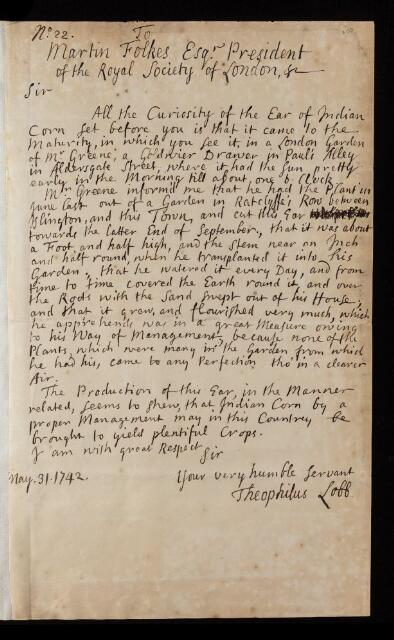 No. 22. To
Martin Folkes Esqr. President
of the Royal Society of London, &c
Sir
All the Curiosity of the Ear of Indian
Corn set before you is that it came to the
Maturity, in which you see it, in a London Garden
of Mr Greene, a Gold wier Drawer in Paul's Alley
in Aldersgate Street, where it had the Sun pretty
early in the Morning till about one o' Clock.
Mr Greene inform'd me that he had the Plant in
June last out of a Garden in Ratcliffe's Row between
Islington, and this Town, and cut this Ear
towards the latter End of September, that it was about
a Foot and half high, and the Stem near on Inch
and half round, when he transplanted it into his
Garden, that he watered it every Day, and from
time to time covered the Earth round it, and over
the Rods with the Sand swept out of his House;
and that it grew, and flourished very much, which
he apprehends was in a great Measure owing
to his Way of Management, because none of the
Plants, which were many in the Garden from which
he had his, came to any Perfection tho' in a clearer
Air.
The Production of this Ear, in the Manner
related, seems to shew, that Indian Corn by a
proper Management may in this Country be
brought to yield plentiful Crops.
I am with great Respect
Sir
May. 31. 1742. Your very humble Servant
Theophilus Lobb